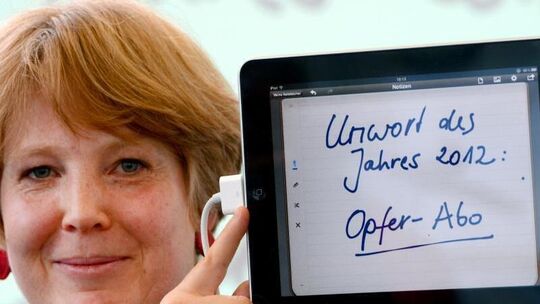 iPad
10:13
Notizen
Unwort des
Jahres 2012:
Opfer-Abo